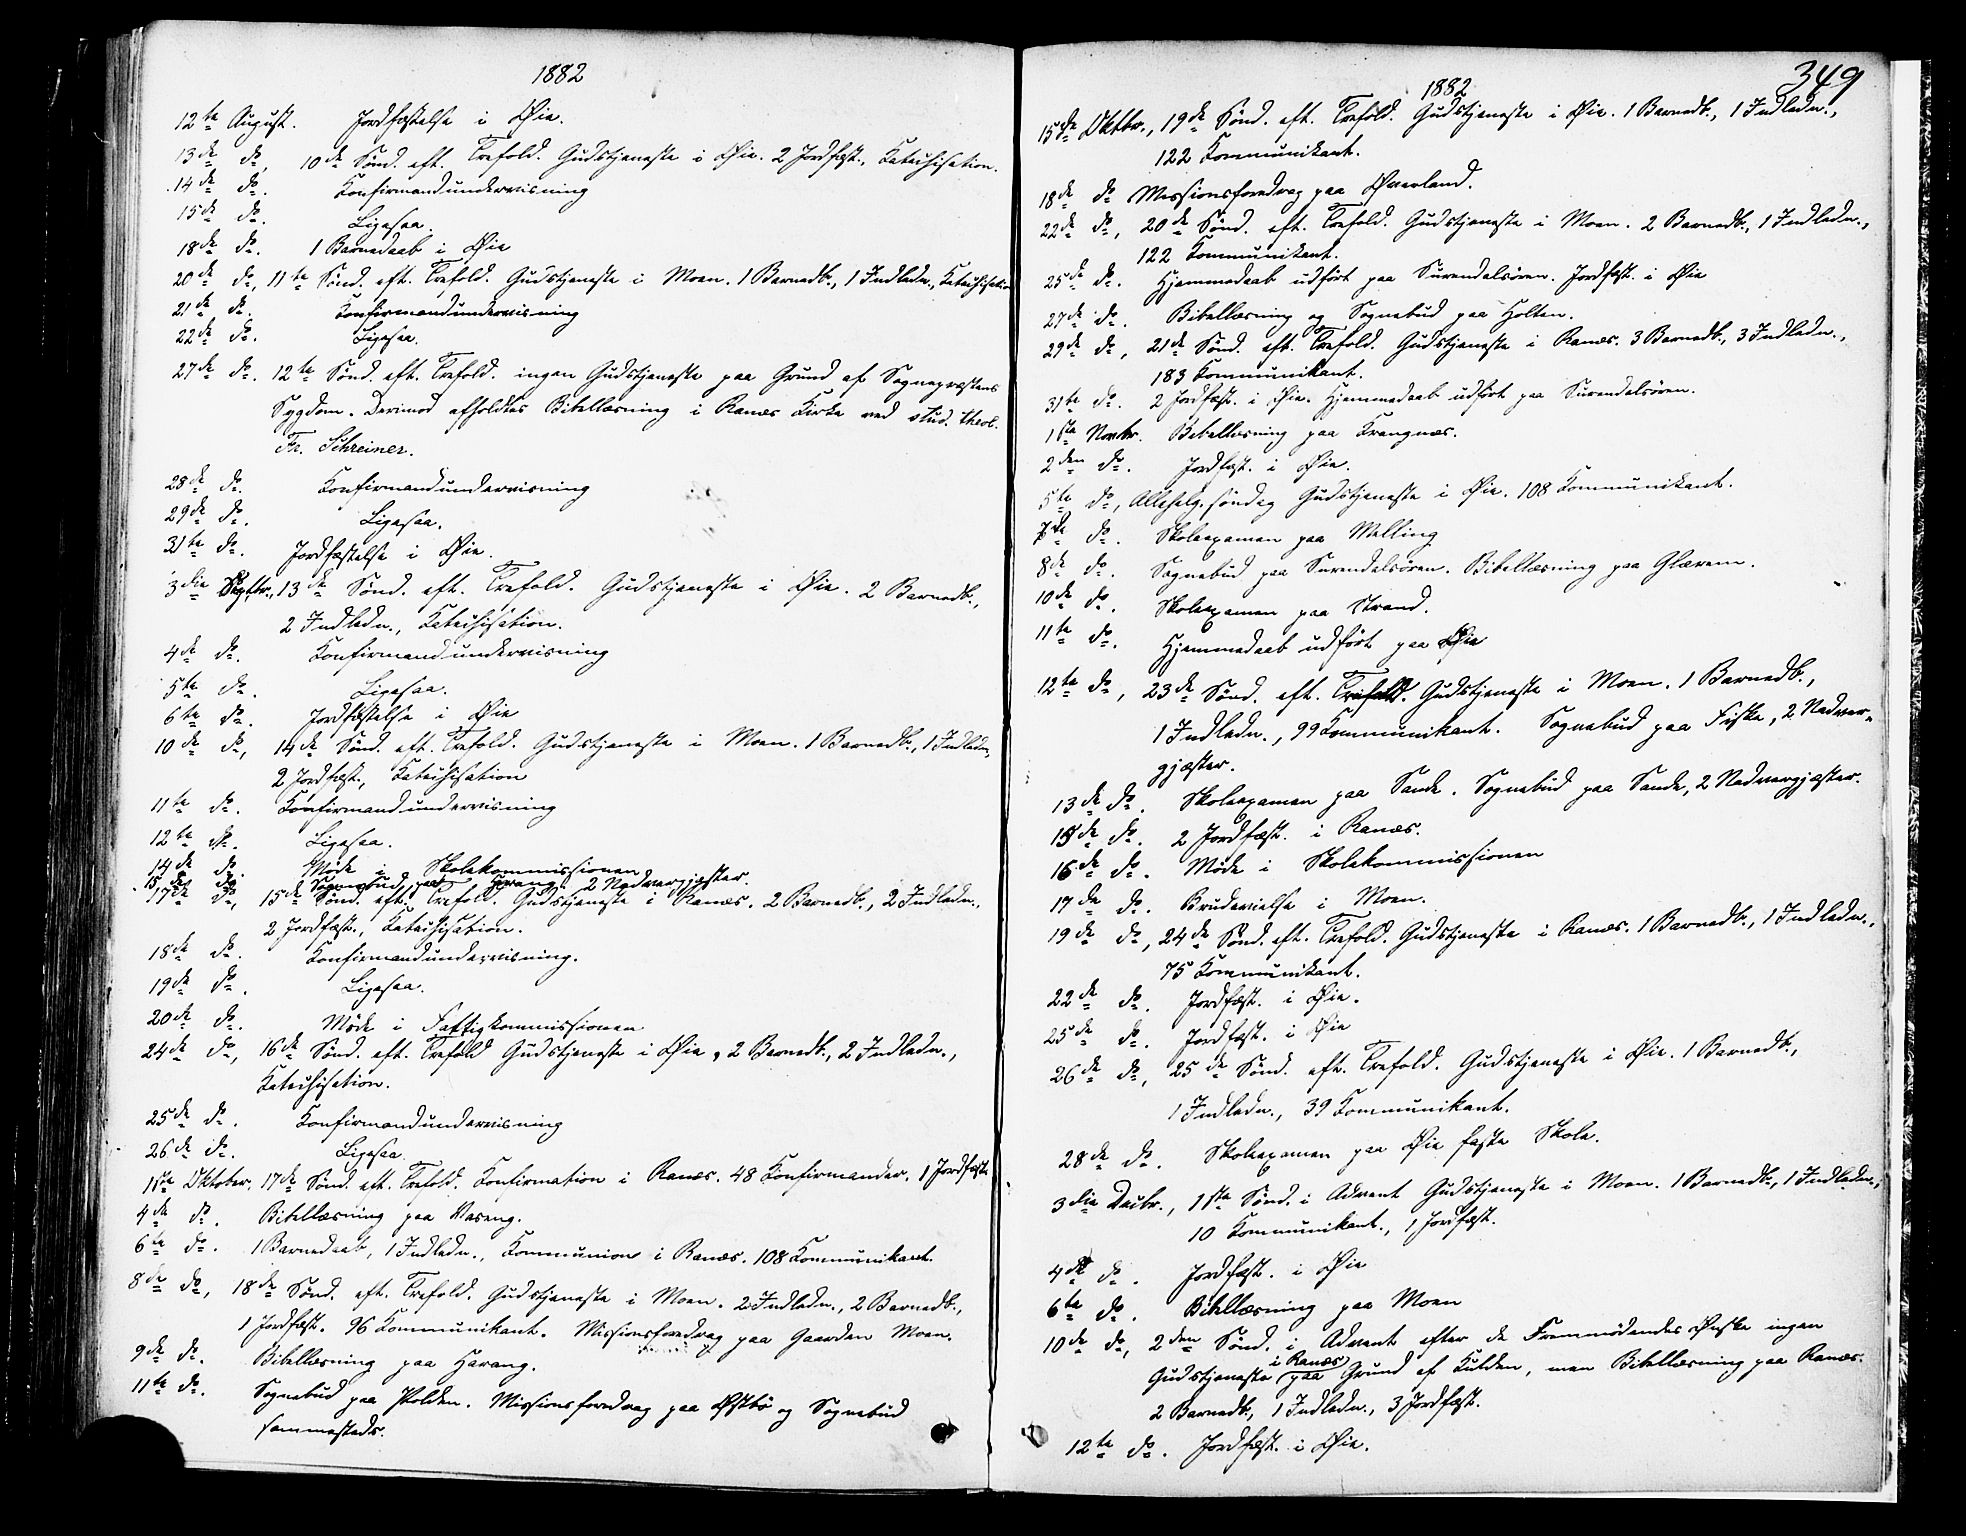 1882
12te August. Jordfæstelse i Øie.
13de do, 10de Sønd. eft. Trefold. Gudstjeneste i Øie. 2 Jordfæst., Katechisation.
14de do. Konfirmandundervisning
15de do. Ligesaa.
18de do. 1 Barnedaab i Øie
20de do, 11te Sønd. eft. Trefold. Gudstjeneste i Moen. 1 Barnedb., 1 Indledn., Katechisation
21de do. Konfirmandundervisning
22de do. Ligesaa.
27de do. 12te Sønd. eft. Trefold. ingen Gudstjeneste paa Grund af Sognepræstens
Sygdom. Derimod afholdtes Bibellæsning i Ranæs Kirke ved stud. theol.
Fr. Schreiner.
28de do. Konfirmandundervisning
29de do. Ligesaa.
31te do. Jordfæstelse i Øie.
3die Septbr., 13de Sønd. eft. Trefold. Gudstjeneste i Øie. 2 Barnedb.,
2 Indledn., Katechisation.
4de do. Konfirmandundervisning
5te do. Ligesaa.
6te do. Jordfæstelse i Øie
10de do, 14de Sønd. eft. Trefold. Gudstjeneste i Moen. 1 Barnedb., 1 Indledn.,
2 Jordfæst., Katechisation
11te do. Konfirmandundervisning
12te do. Ligesaa.
14de do. Møde i Skolekommissionen
15de do. Sognebud paa 2 Nadvergjæster.
17de do, 15de Sønd. eft. Trefold. Gudstjeneste i Ranæs. 2 Barnedb., 2 Indledn.,
2 Jordfæst., Katechisation.
18de do. Konfirmandundervisning.
19de do. Ligesaa.
20de do. Møde i Fattigkommissionen
24de do, 16de Sønd. eft. Trefold Gudstjeneste i Øie, 2 Barnedb., 2 Indledn.,
Katechisation.
25de do. Konfirmandundervisning
26de do. Ligesaa.
1ste Oktober. 17de Sønd. eft. Trefold. Konfirmation i Ranæs. 48 Konfirmander, 1 Jordfæst.
4de do. Bibellæsning paa Vaseng.
6te do. 1 Barnedaab, 1 Indledn., Kommunion i Ranæs. 108 Kommunikant.
8de do, 18de Sønd. eft. Trefold. Gudstjeneste i Moen. 2 Indledn., 2 Barnedb.,
1 Jordfæst. 96 Kommunikant. Missionsforedrag paa Gaarden Moen.
9de do. Bibellæsning paa Harang.
11te do. Sognebud paa Holden. Missionsforedrag paa Østbø og Sognebud
sammesteds.
349
1882
15de Oktbr., 19de Sønd. eft. Trefold. Gudstjeneste i Øie. 1 Barnedb., 1 Indledn.,
122 Kommunikant.
18de do Missionsforedrag paa Øverland.
22de do, 20de Sønd. eft. Trefold. Gudstjeneste i Moen. 2 Barnedb., 1 Indledn.,
122 Kommunikant.
25de do. Hjemmedaab udført paa Surendalsøren. Jordfæst. i Øie
27de do. Bibellæsning og Sognebud paa Holten.
29de do, 21de Sønd. eft. Trefold. Gudstjeneste i Ranæs. 3 Barnedb., 3 Indledn.,
183 Kommunikant.
31te do. 2 Jordfæst. i Øie. Hjemmedaab udført paa Surendalsøren.
1ste Novbr. Bibellæsning paa Krangnæs.
2den do. Jordfæst. i Øie.
5te do, Allehelg.søndag Gudstjeneste i Øie. 108 Kommunikant.
7de do. Skoleexamen paa Melling
8de do. Sognebud paa Surendalsøren. Bibellæsning paa Glærem.
10de do. Skoleexamen paa Strand.
11te do. Hjemmedaab udført paa Øie
12te do, 23de Sønd. eft. Trefold. Gudstjeneste i Moen. 1 Barnedb.,
1 Indledn., 99 Kommunikant. Sognebud paa Fiske, 2 Nadver-
gjæster.
13de do. Skoleexamen paa Sande. Sognebud paa Sande, 2 Nadvergjæster.
15de do. 2 Jordfæst. i Ranæs.
16de do. Møde i Skolekommissionen
17de do. Brudevielse i Moen.
19de do, 24de Sønd. eft. Trefold. Gudstjeneste i Ranæs. 1 Barnedb., 1 Indledn.,
75 Kommunikant.
22de do. Jordfæst. i Øie.
25de do. Jordfæst. i Øie
26de do, 25de Sønd. eft. Trefold. Gudstjeneste i Øie. 1 Barnedb.,
1 Indledn., 39 Kommunikant.
28de do. Skoleexamen paa Øie faste Skole.
3die Decbr., 1ste Sønd. i Advent Gudstjeneste i Moen. 1 Barnedb., 1 Indledn.,
10 Kommunikant., 1 Jordfæst.
4de do. Jordfæst. i Øie
6te do. Bibellæsning paa Moen
10de do, 2den Sønd. i Advent efter de Fremmødendes Ønske ingen
Gudstjeneste i Ranæs paa Grund af Kulden, men Bibellæsning paa Ranæs.
2 Barnedb., 1 Indledn., 3 Jordfæst.
12te do. Jordfæst. i Øie.